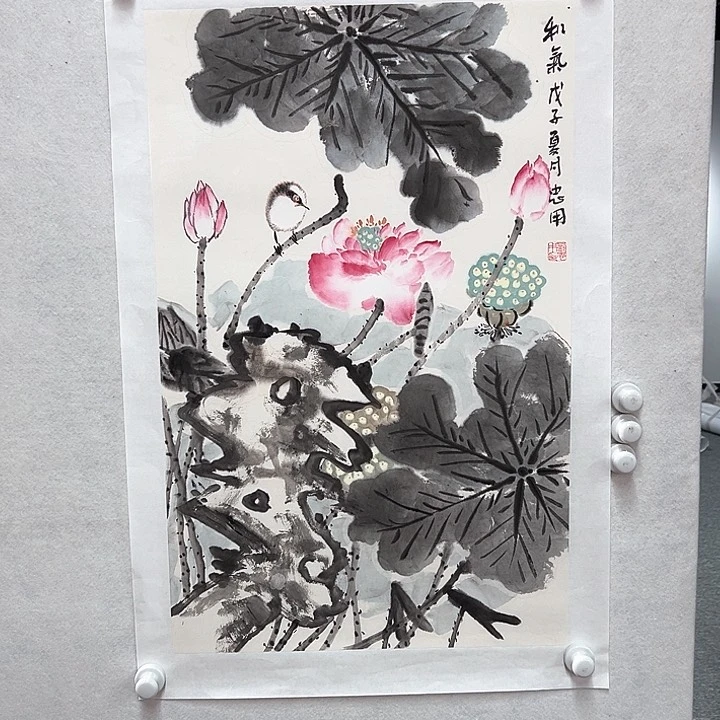 和氣 戊子夏月忠用